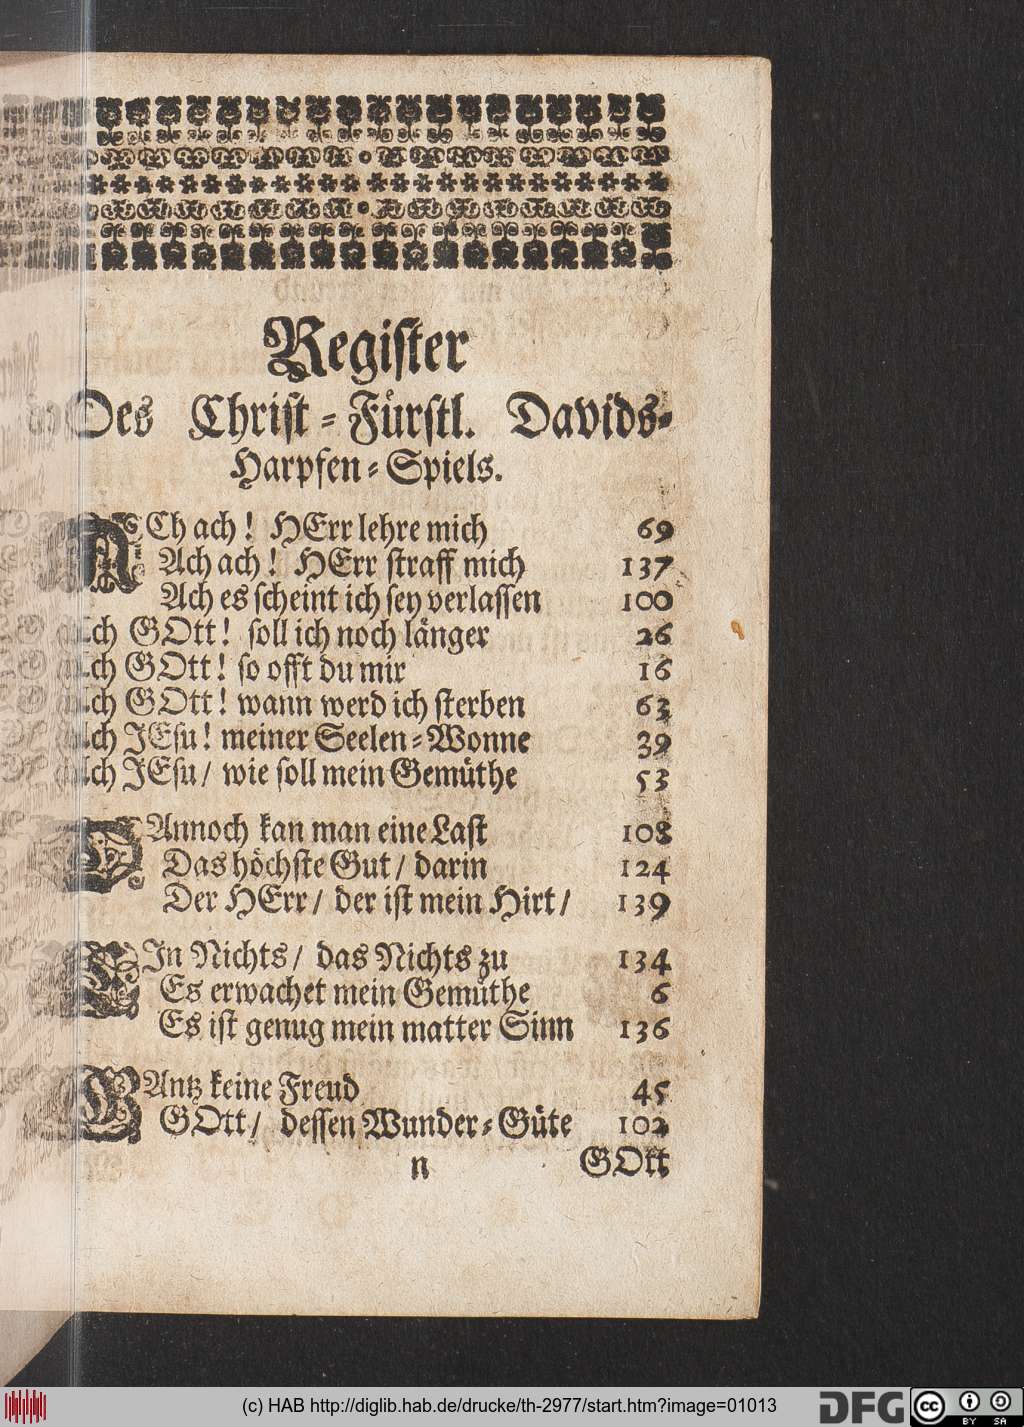 Register
Des Christ-Fürstl. Davids-
Harpfen-Spiels.
ACh ach! HErr lehre mich 69
Ach ach! HErr straff mich 137
Ach es scheint ich sey verlassen 100
Ach GOtt! soll ich noch länger 26
Ach GOtt! so offt du mir 16
Ach GOtt! wann werd ich sterben 63
Ach JEsu! meiner Seelen-Wonne 39
Ach JEsu/ wie soll mein Gemüthe 53
DAnnoch kan man eine Last 108
Das höchste Gut/ darin 124
Der HErr/ der ist mein Hirt/ 139
EJn Nichts/ das Nichts zu 134
Es erwachet mein Gemüthe 6
Es ist genug mein matter Sinn 136
GAntz keine Freud 45
GOtt/ dessen Wunder-Güte 102
n GOtt
(c) HAB http://diglib.hab.de/drucke/th-2977/start.htm?image=01013
DFG
cc BY SA